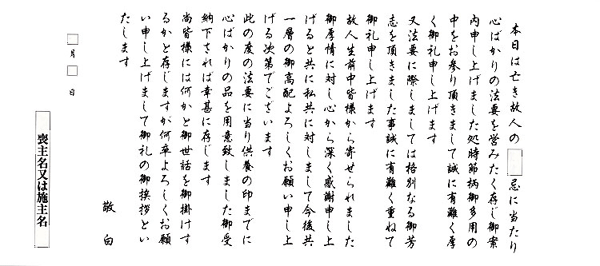 本日は亡き故人の□忌に当たり
心ばかりの法要を営みたく存じ御案
内申し上げました処時節柄御多用の
中をお参り頂きまして誠に有難く厚
く御礼申し上げます
又法要に際しましては格別なる御芳
志を頂きました事誠に有難く重ねて
御礼申し上げます
故人生前中皆様から寄せられました
御厚情に対し心から深く感謝申し上
げると共に私共に対しまして今後共
一層の御高配よろしくお願い申し上
げる次第でございます
此の度の法要に当り供養の印までに
心ばかりの品を用意致しました御受
納下されば幸甚に存じます
尚皆様には何かと御世話を御掛けす
るかと存じますが何卒よろしくお願
い申し上げまして御礼の御挨拶とい
たします
敬白
□月□日
喪主名又は施主名